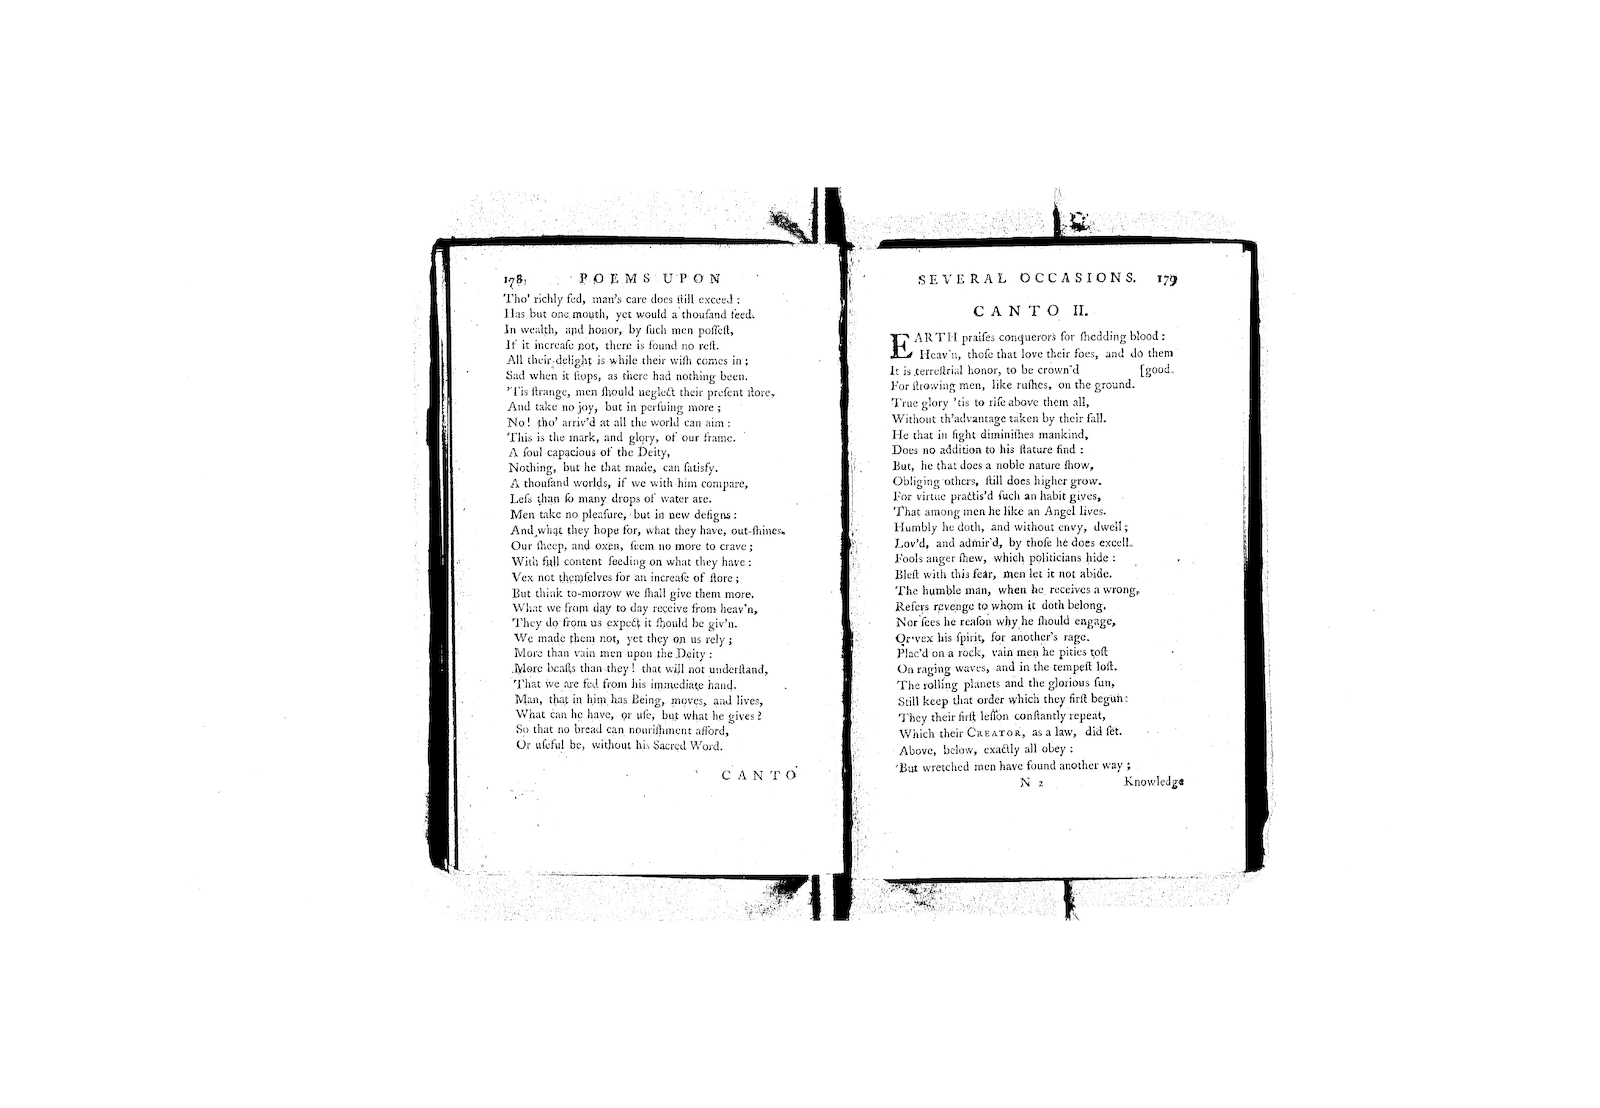 178, POEMS UPON
Tho' richly fed, man's care does ſtill exceed :
Has but one mouth, yet would a thouſand feed.
In wealth, and honor, by ſuch men poſſeſt,
If it increaſe not, there is found no reſt.
All their delight is while their wiſh comes in ;
Sad when it ſtops, as there had nothing been.
'Tis ſtrange, men ſhould neglect their preſent ſtore,
And take no joy, but in perſuing more ;
No! tho' arriv'd at all the world can aim :
This is the mark, and glory, of our frame.
A ſoul capacious of the Deity,
Nothing, but he that made, can ſatisfy.
A thouſand worlds, if we with him compare,
Leſs than ſo many drops of water are.
Men take no pleaſure, but in new deſigns :
And what they hope for, what they have, out-ſhines.
Our ſheep, and oxen, ſeem no more to crave ;
With full content feeding on what they have :
Vex not themſelves for an increaſe of ſtore ;
But think to-morrow we ſhall give them more.
What we from day to day receive from heav'n,
They do from us expect it ſhould be giv'n.
We made them not, yet they on us rely ;
More than vain men upon the Deity :
More beaſts than they! that will not underſtand,
That we are fed from his immediate hand.
Man, that in him has Being, moves, and lives,
What can he have, or uſe, but what he gives?
So that no bread can nouriſhment afford,
Or uſeful be, without his Sacred Word.
CANTO
SEVERAL OCCASIONS. 179
CANTO II.
EARTH praiſes conquerors for ſhedding blood :
Heav'n, thoſe that love their foes, and do them
It is terreſtrial honor, to be crown'd [good.
For ſtrowing men, like ruſhes, on the ground.
True glory 'tis to riſe above them all,
Without th'advantage taken by their fall.
He that in fight diminiſhes mankind,
Does no addition to his ſtature find :
But, he that does a noble nature ſhow,
Obliging others, ſtill does higher grow.
For virtue practis'd ſuch an habit gives,
That among men he like an Angel lives.
Humbly he doth, and without envy, dwell ;
Lov'd, and admir'd, by thoſe he does excell.
Fools anger ſhew, which politicians hide :
Bleſt with this fear, men let it not abide.
The humble man, when he receives a wrong,
Refers revenge to whom it doth belong.
Nor ſees he reaſon why he ſhould engage,
Or vex his ſpirit, for another's rage.
Plac'd on a rock, vain men he pities toſt
On raging waves, and in the tempeſt loſt.
The rolling planets and the glorious ſun,
Still keep that order which they firſt begun :
They their firſt leſſon conſtantly repeat,
Which their CREATOR, as a law, did ſet.
Above, below, exactly all obey :
But wretched men have found another way ;
N 2 Knowledge